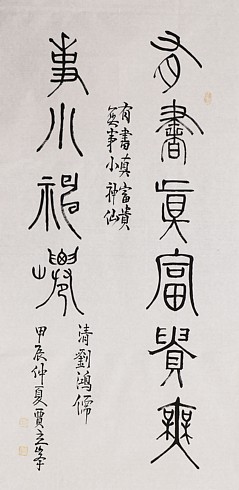 有書真富貴無
事小神仙
有書真富貴
無事小神仙
清劉鴻儒
甲辰仲夏賈立